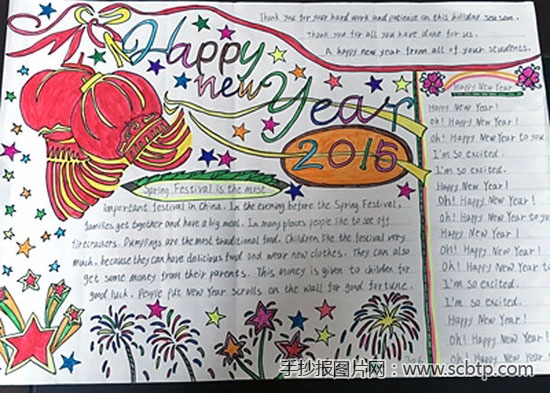 Thank you for your hard work and patience on this holiday season.
Thank you for all you have done for us.
A happy new year from all of your students.
Happy
new Year
2016
Spring Festival is the most
important festival in China. In the evening before the Spring Festival,
families get together and have a big meal. In many places people like to set off
firecrackers. Dumplings are the most traditional food. Children like the festival very
much, because they can have delicious food and wear new clothes. They can also
get some money from their parents. This money is given to children for
good luck. People put New Year scrolls on the wall for good fortune.
Happy New Year
Happy New Year!
Oh! Happy New Year!
Oh! Happy New Year to you
I'm so excited.
I'm so excited.
Happy New Year!
Oh! Happy New Year!
Oh! Happy New Year to you
Happy New Year!
Oh! Happy New Year!
Oh! Happy New Year to
I'm so excited.
I'm so excited.
Happy New Year!
Oh! Happy New Year!
Oh! Happy New Year
手抄报图片网：www.scbtp.com